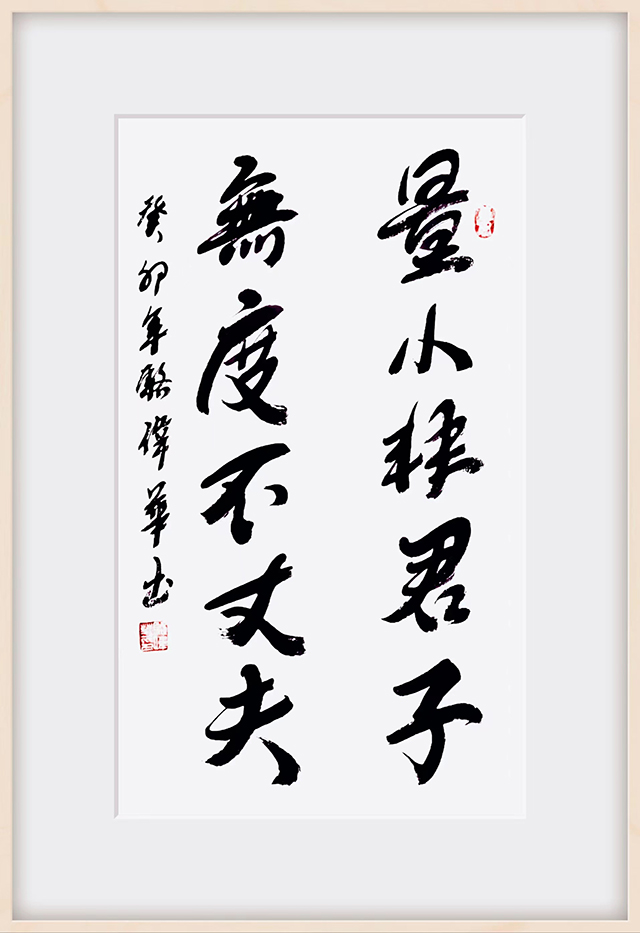 量小非君子
無度不丈夫
癸卯年駱偉華书